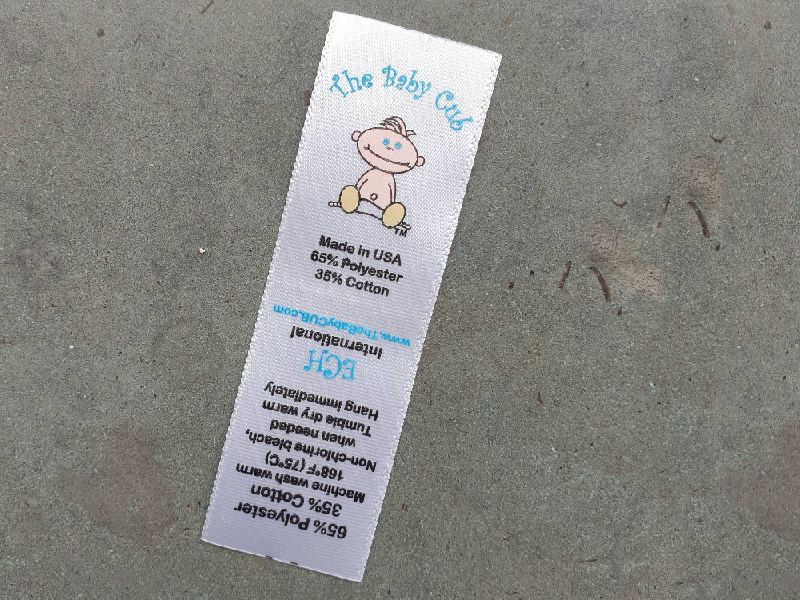 The Baby Cub
TM
Made in USA
65% Polyester
35% Cotton
65% Polyester
35% Cotton
Machine wash warm
168°F (75°C)
Non-chlorine bleach,
when needed
Tumble dry warm
Hang immediately
ECH
International
www.TheBabyCUB.com